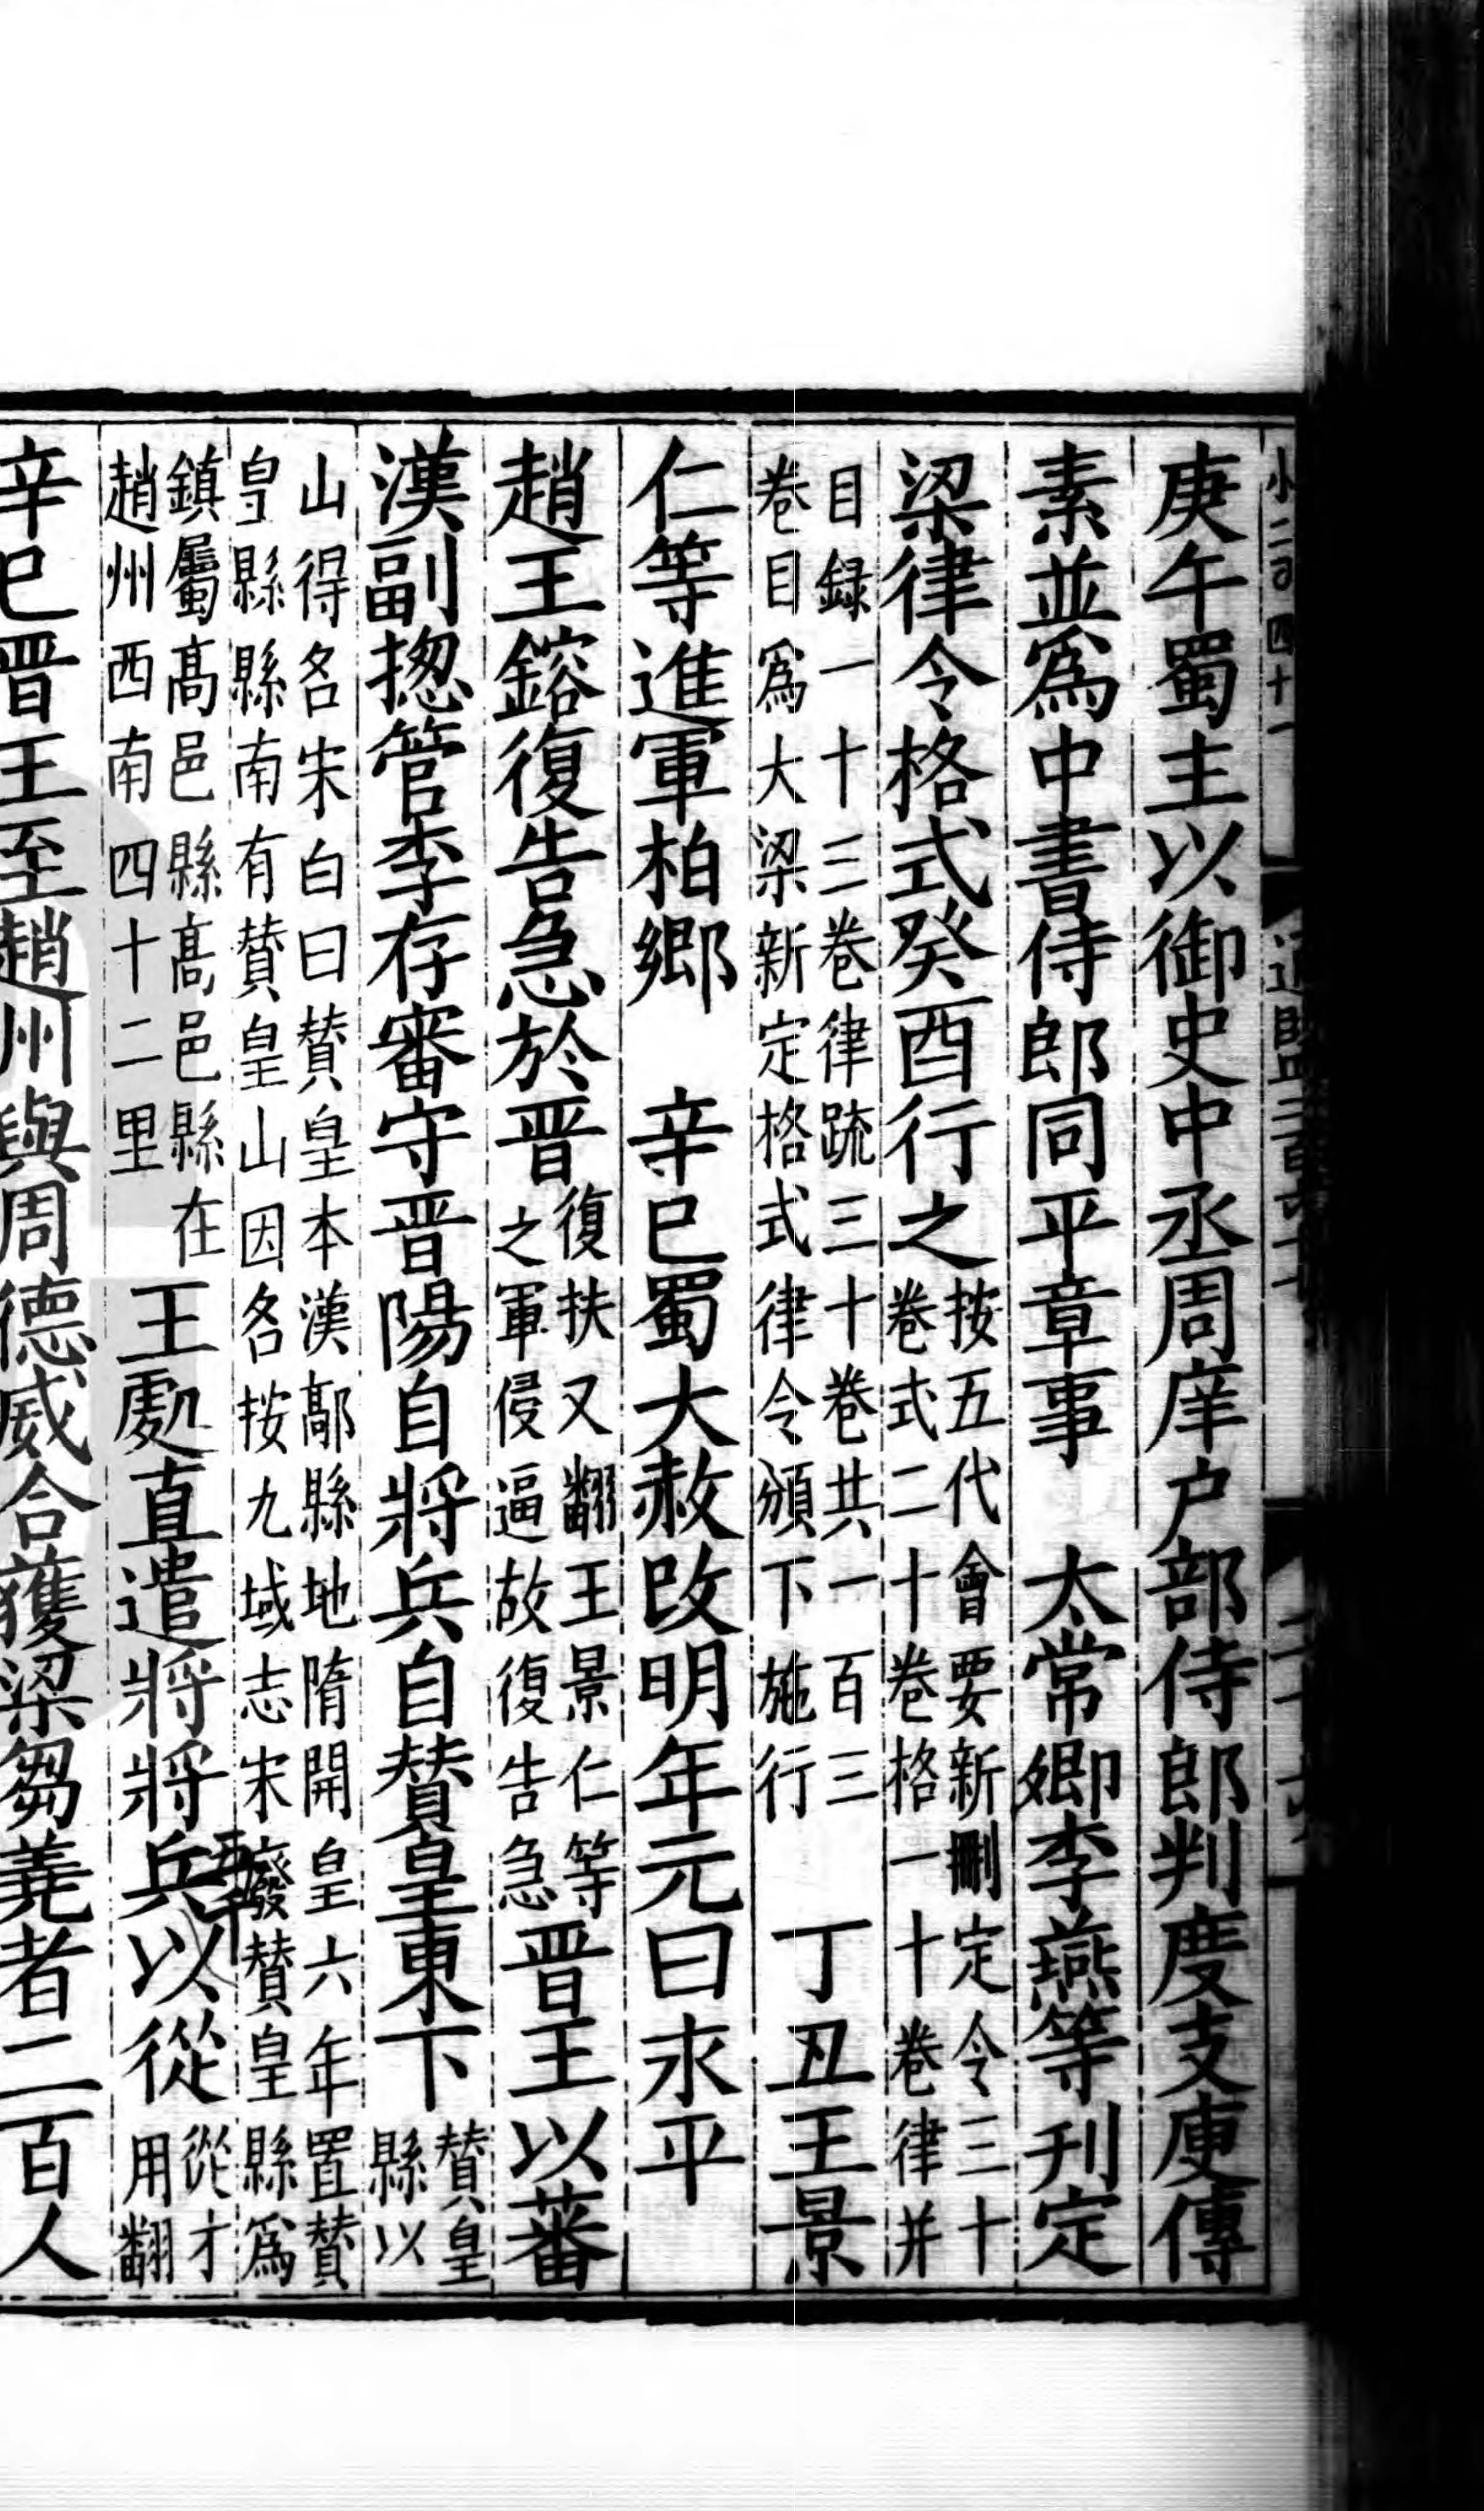 庚午蜀主以御史中丞周庠户部侍郎判度支庾傳
素並爲中書侍郎同平章事　太常卿李燕等刋定
梁律令格式癸酉行之按五代會要新刪定令三十卷式二十卷格一十卷律并
目録一十三卷律䟽三十卷共一百三卷目爲大梁新定格式律令頒下施行　丁丑王景
仁等進軍柏鄉　辛巳蜀大赦改明年元曰永平
趙王鎔復告急於晋復扶又翻王景仁等之軍侵逼故復告急晋王以蕃
漢副揔管李存審守晋陽自將兵自贊皇東下贊皇縣以
山得名宋白曰贊皇本漢鄗縣地隋開皇六年置贊皇縣縣南有贊皇山因名按九域志宋廢贊皇縣爲
鎮屬髙邑縣髙邑縣在趙州西南四十二里王處直遣將將兵以從從才用翻
辛巳晋王至趙州與周德威合獲梁芻蕘者二百人